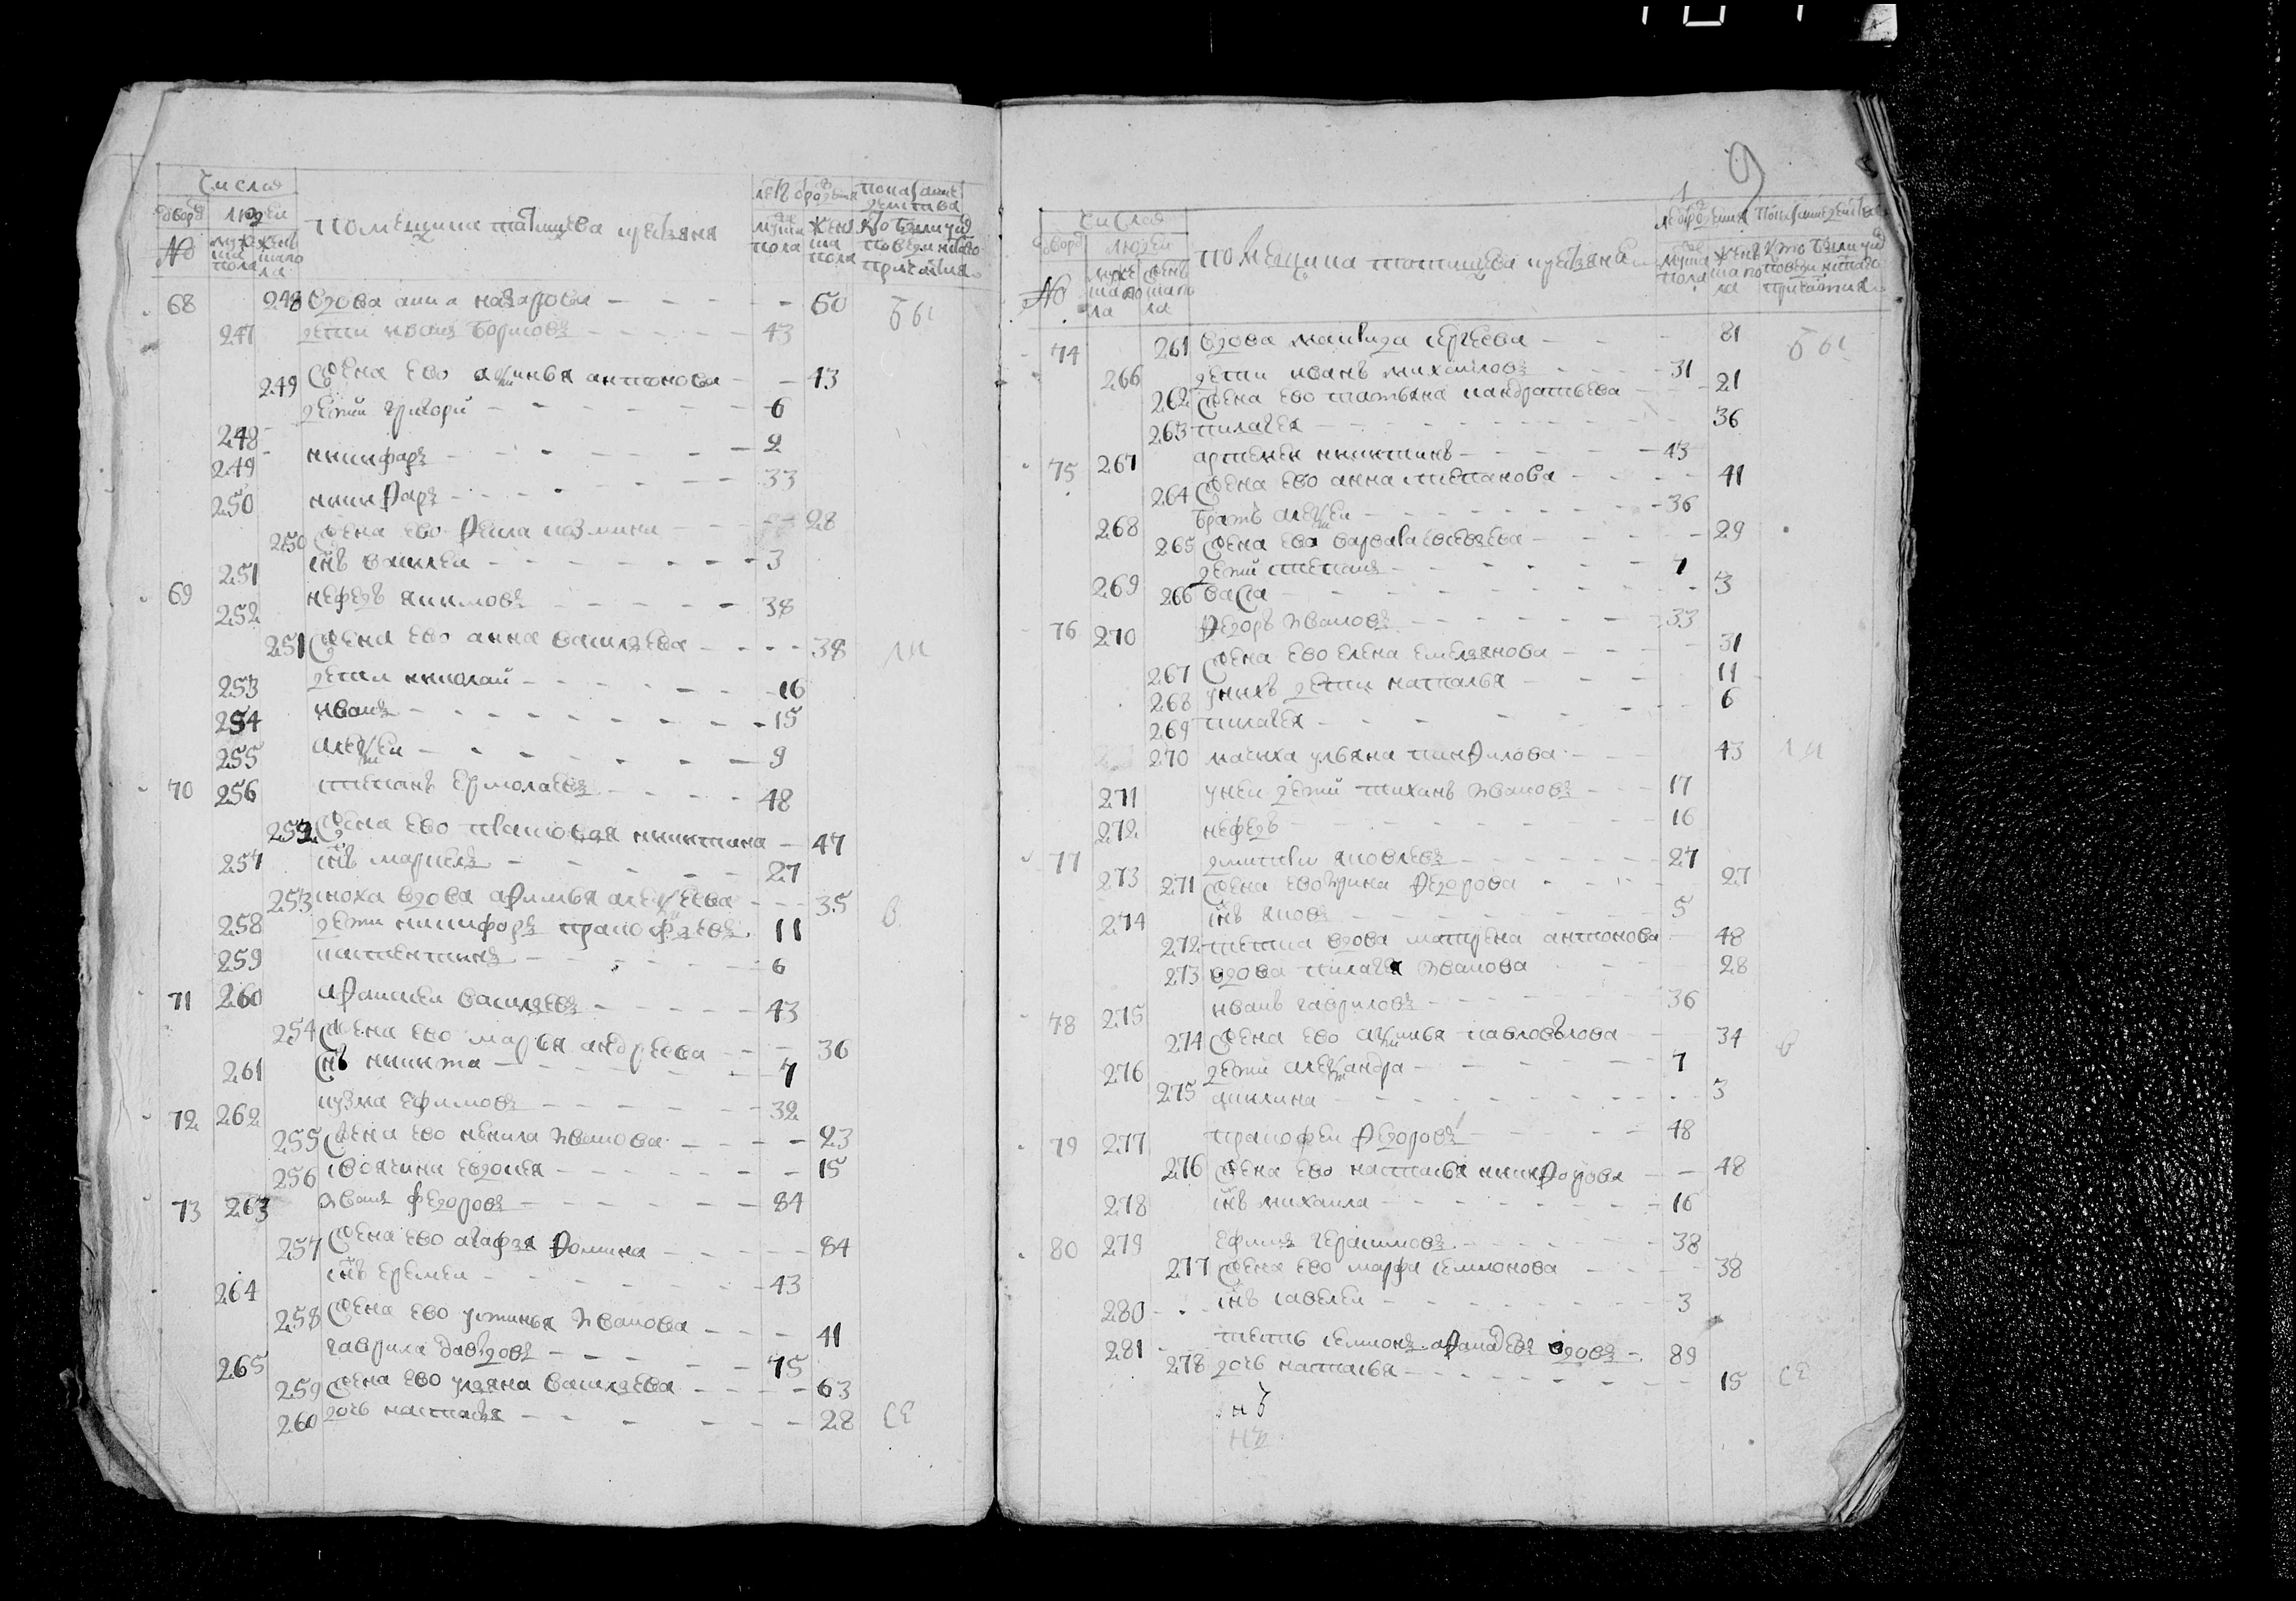 Числа
дворо людеи
№ мужеска пола женска пола
помещика татищева крестьяня
лет от рождения
мужеска пола женска пола
показание действа
кто были и у исповеди и святаго причастия
68 248 вдова анна назарова 60 бы
247 дети иванъ борисовъ 43
249 жена ево аксинья антонова 43
248 дети григори 6
249 никифаръ 2
250 никифаръ 33
250 жена ево фекла козмина 28
251 снъ василеи 3
69 252 нефедъ якимовъ 38
251 жена ево анна васильева 38 ли
253 дети николаи 16
254 иванъ 15
255 алексеи 9
70 256 степанъ ермолаевъ 48
252 жена ево прасковья никитина 47
257 снъ маркелъ 27
253 сноха вдова афимья алексеева 35 в
258 дети никифоръ пракофьевъ 11
259 костентинъ 6
71 260 афанасеи васильевъ 43
254 жена ево марья андреева 36
261 снъ никита 7
72 262 кузма ефимовъ 32
255 жена ево ненила иванова 23
256 своячина евдокея 15
73 263 иванъ федоровъ 84
257 жена ево агафья фомина 84
264 снъ еремеи 43
258 жена ево устинья иванова 41
265 гаврила давыдовъ 75
259 жена ево ульяна васильева 63
260 дочь наталья 28 се
9
Числа
дворо людеи
№ мужеска пола женска пола
помещика татищева крестьяня
лет от рождения
мужеска пола женска пола
показание действа
кто были и у исповеди и святаго причастия
74 261 вдова макрида сергеева 81 бы
266 дети иванъ михаиловъ 31
262 жена ево татьяна кандратьева 21
263 пилагея 36
75 267 артемеи никитинъ 43
264 жена ево анна степанова 41
268 братъ алексеи 36
265 жена ева варвара евсевьева 29
269 дети степанъ 7
266 васса 3
76 270 федоръ ивановъ 33
267 жена ево елена емельянова 31
268 у нихъ дети наталья 11
269 пилагея 6
270 мачиха ульяна панфилова 43 ли
271 у неи дети тиханъ ивановъ 17
272 нефедъ 16
77 273 дмитреи яковлевъ 27
271 жена ево ирина федорова 27
274 снъ яковъ 5
272 тетка вдова матрена антонова 48
273 вдова пилагея иванова 28
78 275 иванъ гавриловъ 36
274 жена ево аксинья павловьлова 34 в
276 дети александра 7
275 акилина 3
79 277 пракофеи федоровъ 48
276 жена ево наталья никифорова 48
278 снъ михаила 16
80 279 ефимъ герасимовъ 38
277 жена ево марфа семионова 38
280 снъ савелеи 3
281 тесть семионъ афанасьевъ вдовъ 89
278 дочь наталья 15 се